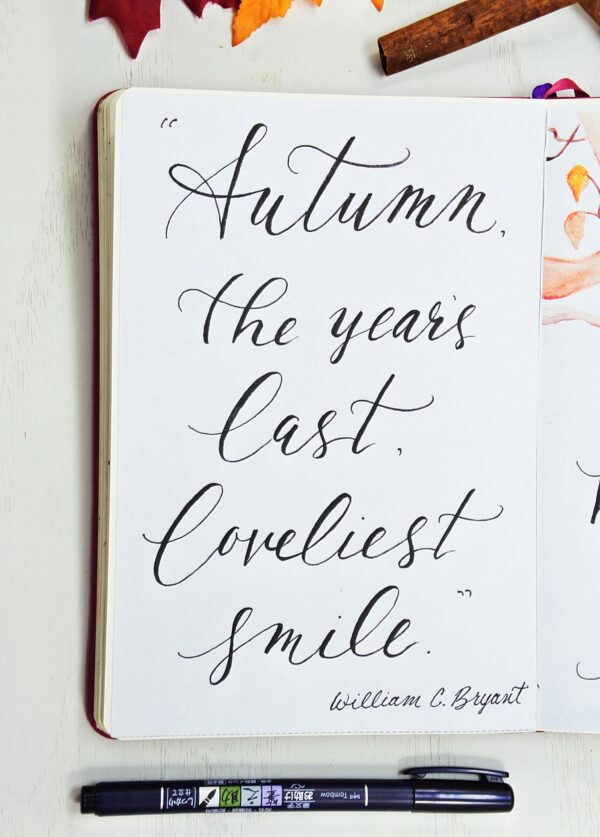 "Autumn,
the year's
last,
loveliest
smile."
William C. Bryant
Tombow
筆文字
お助け
しっかり
仕立て